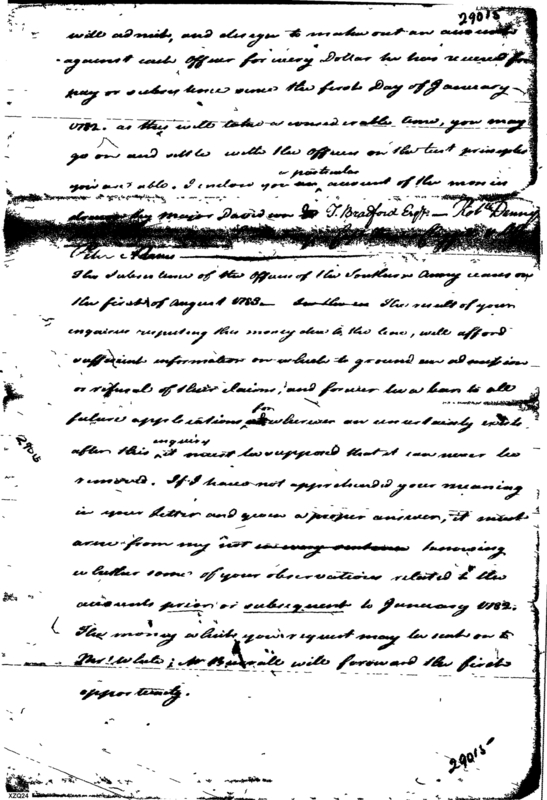 29015
will admit, and design to make out an account
against each officer for every Dollar he has received for
pay or subsistence since the first Day of January
1782. as this will take a considerable time, you may
go on and settle with the Officers on the best principles
a particular
you are able. I enclose you an account of the monies
drawn by Major Davidson J. Bradford Esqr. — Robt. Denny
Peter Adams
The subsistence of the officers of the Southern Army ceases on
the first of August 1783. — The result of your
inquiries respecting the money due to the line, will afford
sufficient information on which to ground an admission
or refusal of their claims, and forever be a bar to all
for
future applications, wherever an uncertainty exists
enquiry
after this, it must be supposed that it can never be
removed. If I have not apprehended your meaning
in your letter and given a proper answer, it must
arise from my not in every sentence knowing
whether some of your observations related to the
accounts prior or subsequent to January 1782.
The money which you request may be sent on to
Mr. White; Mr Burrall will forward the first
opportunity.
29015
29015
XZG24